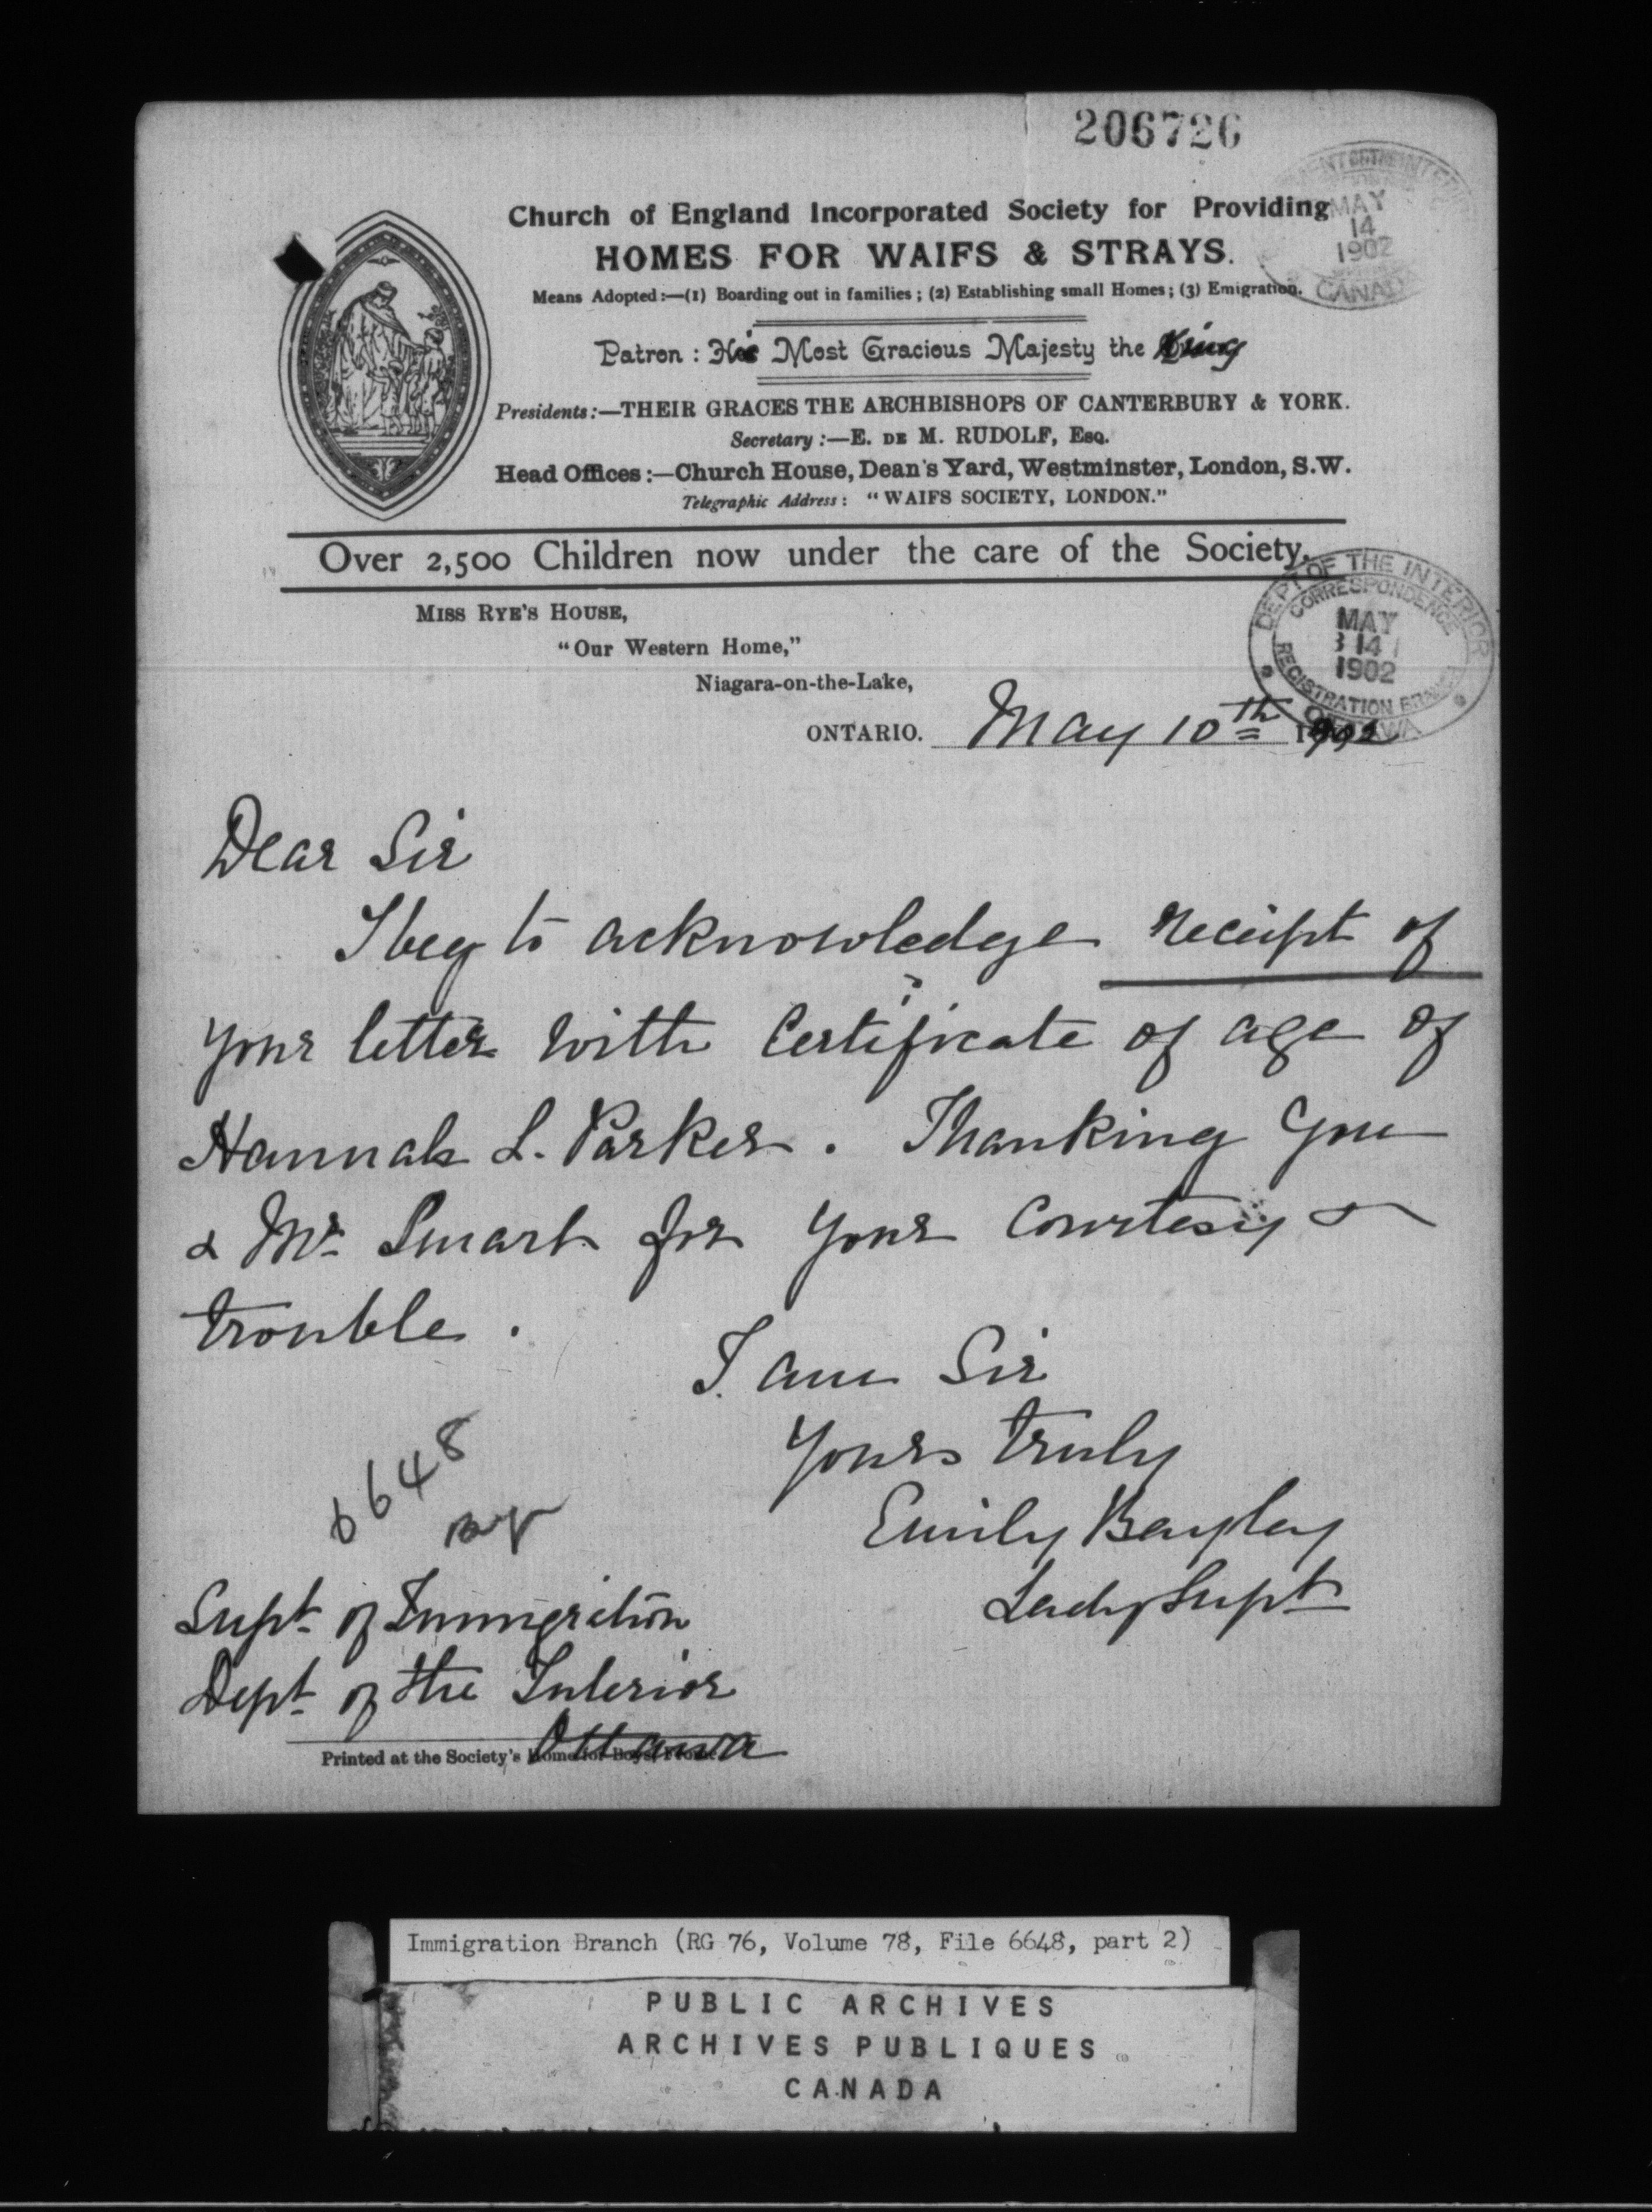 206726
MAY
14
1902
CANADA
Church of England Incorporated Society for Providing
HOMES FOR WAIFS & STRAYS.
Means Adopted:—(1) Boarding out in families; (2) Establishing small Homes; (3) Emigration.
Patron: His Most Gracious Majesty the King
Presidents:—THEIR GRACES THE ARCHBISHOPS OF CANTERBURY & YORK.
Secretary:—E. DE M. RUDOLF, ESQ.
Head Offices:—Church House, Dean's Yard, Westminster, London, S.W.
Telegraphic Address: "WAIFS SOCIETY, LONDON."
Over 2,500 Children now under the care of the Society.
DEPT OF THE INTERIOR
CORRESPONDENCE
MAY
14
1902
REGISTRATION BRANCH
OTTAWA
MISS RYE'S HOUSE,
"Our Western Home,"
Niagara-on-the-Lake,
ONTARIO. May 10th 1902
Dear Sir
I beg to acknowledge receipt of
your letter with Certificate of age of
Hannah L. Parker. Thanking you
& Mr Smart for your courtesy &
trouble.
I am Sir
Yours truly
Emily Bayley
Lady Supt
6648
Supt of Immigration
Dept of the Interior
Ottawa
Printed at the Society's Home for Boys,
Immigration Branch (RG 76, Volume 78, File 6648, part 2)
PUBLIC ARCHIVES
ARCHIVES PUBLIQUES
CANADA